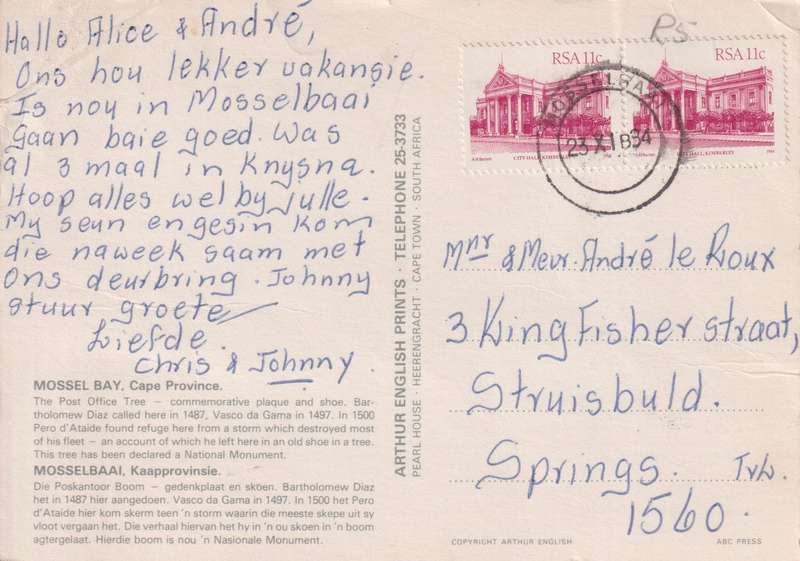 Hallo Alice & André,
Ons hou lekker vakansie.
Is nou in Mosselbaai
Gaan baie goed. Was
al 3 maal in Knysna.
Hoop alles wel by julle.
My seun en gesin kom
die naweek saam met
ons deurbring. Johnny
stuur groete
Liefde.
Chris & Johnny.
MOSSEL BAY, Cape Province.
The Post Office Tree – commemorative plaque and shoe. Bar-
tholomew Diaz called here in 1487, Vasco da Gama in 1497. In 1500
Pero d'Ataide found refuge here from a storm which destroyed most
of his fleet – an account of which he left here in an old shoe in a tree.
This tree has been declared a National Monument.
MOSSELBAAI, Kaapprovinsie.
Die Poskantoor Boom – gedenkplaat en skoen. Bartholomew Diaz
het in 1487 hier aangedoen. Vasco da Gama in 1497. In 1500 het Pero
d'Ataide hier kom skerm teen 'n storm waarin die meeste skepe uit sy
vloot vergaan het. Die verhaal hiervan het hy in 'n ou skoen in 'n boom
agtergelaat. Hierdie boom is nou 'n Nasionale Monument.
ARTHUR ENGLISH PRINTS · TELEPHONE 25-3733
PEARL HOUSE · HEERENGRACHT · CAPE TOWN · SOUTH AFRICA
R5
RSA 11c
RSA 11c
MOSSELBAAI
23 XI 84
CITY HALL, KIMBERLEY
CITY HALL, KIMBERLEY
Mnr & Mevr. André le Roux
3 King Fisher straat,
Struisbuld.
Springs. Tvl.
1560.
COPYRIGHT ARTHUR ENGLISH
ABC PRESS